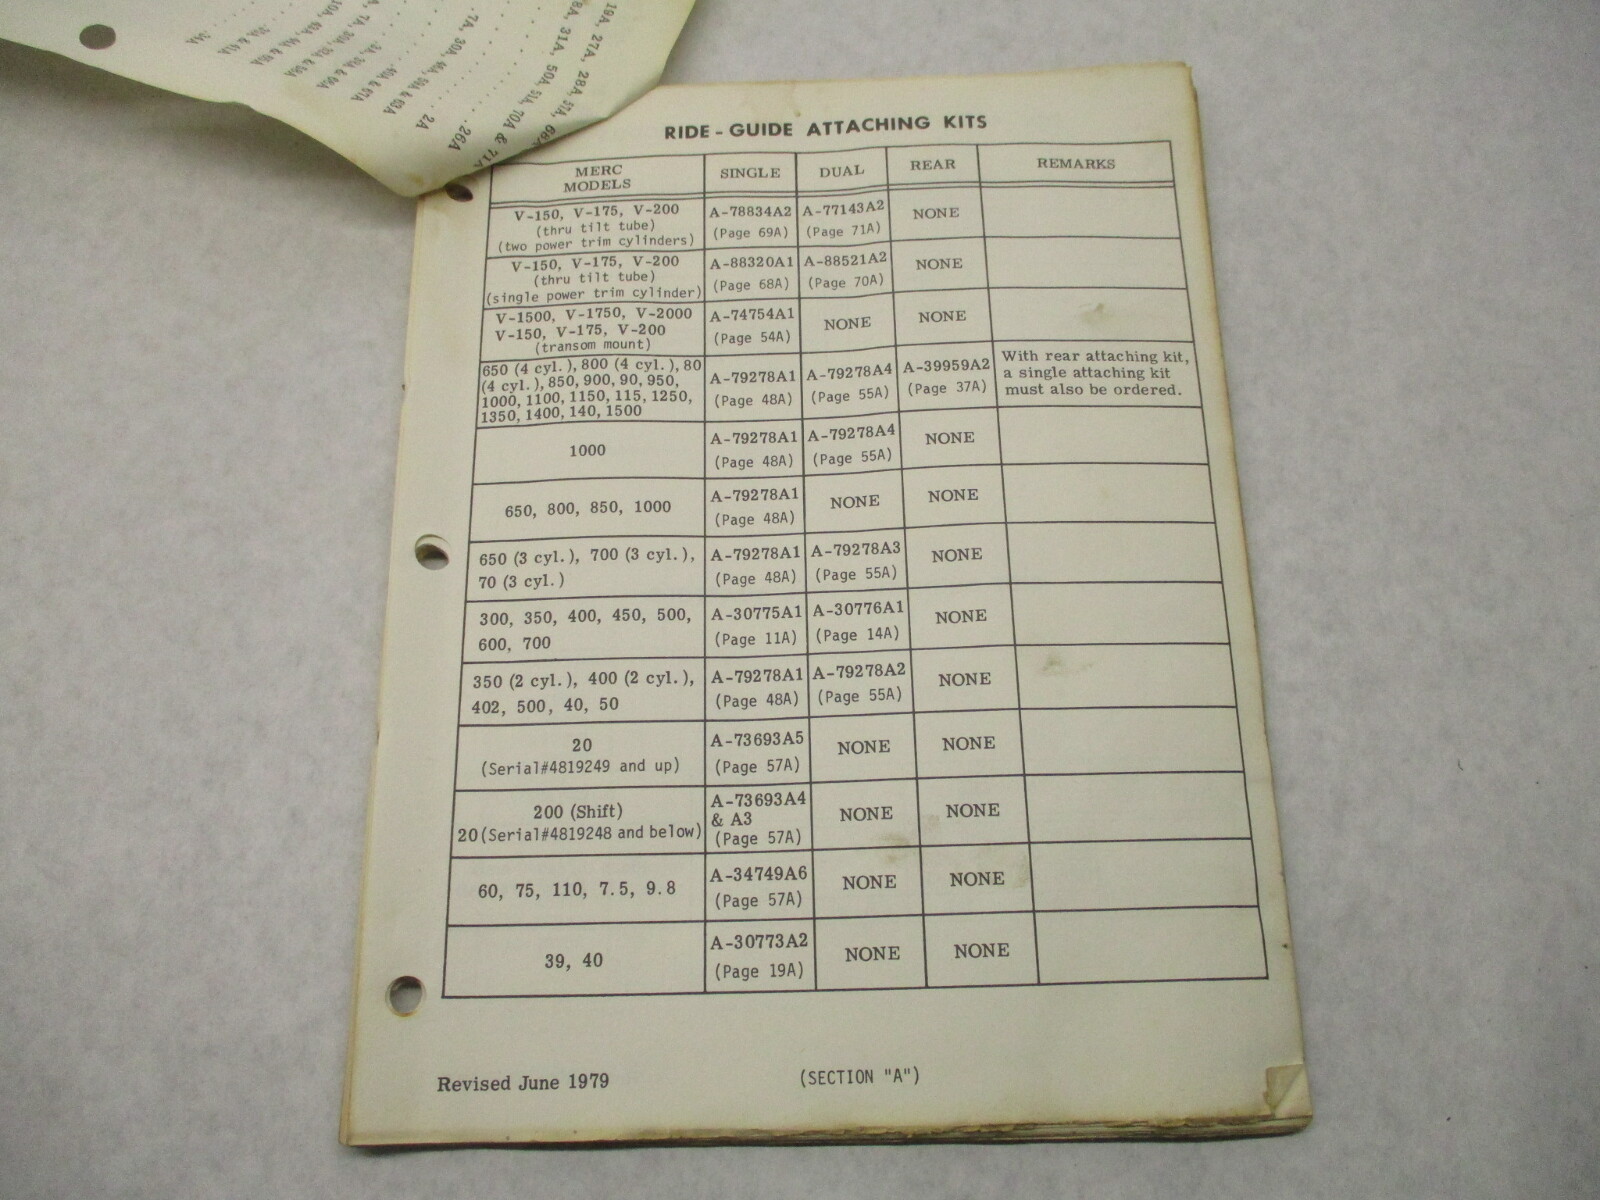 19A, 27A, 28A, 57A, 68A
8A, 31A, 50A, 51A, 70A & 71A
. 26A
7A, 30A, 46A, 59A & 62A
2A
RIDE - GUIDE ATTACHING KITS
MERC MODELS SINGLE DUAL REAR REMARKS
V-150, V-175, V-200 A-78834A2 A-77143A2 NONE
(thru tilt tube) (Page 69A) (Page 71A)
(two power trim cylinders)
V-150, V-175, V-200 A-88320A1 A-88521A2 NONE
(thru tilt tube) (Page 68A) (Page 70A)
(single power trim cylinder)
V-1500, V-1750, V-2000 A-74754A1 NONE NONE
V-150, V-175, V-200 (Page 54A)
(transom mount)
650 (4 cyl.), 800 (4 cyl.), 80 A-79278A1 A-79278A4 A-39959A2 With rear attaching kit,
(4 cyl.), 850, 900, 90, 950, (Page 48A) (Page 55A) (Page 37A) a single attaching kit
1000, 1100, 1150, 115, 1250, must also be ordered.
1350, 1400, 140, 1500
1000 A-79278A1 A-79278A4 NONE
(Page 48A) (Page 55A)
650, 800, 850, 1000 A-79278A1 NONE NONE
(Page 48A)
650 (3 cyl.), 700 (3 cyl.), A-79278A1 A-79278A3 NONE
70 (3 cyl.) (Page 48A) (Page 55A)
300, 350, 400, 450, 500, A-30775A1 A-30776A1 NONE
600, 700 (Page 11A) (Page 14A)
350 (2 cyl.), 400 (2 cyl.), A-79278A1 A-79278A2 NONE
402, 500, 40, 50 (Page 48A) (Page 55A)
20 A-73693A5 NONE NONE
(Serial#4819249 and up) (Page 57A)
200 (Shift) A-73693A4 NONE NONE
20(Serial#4819248 and below) & A3
(Page 57A)
60, 75, 110, 7.5, 9.8 A-34749A6 NONE NONE
(Page 57A)
39, 40 A-30773A2 NONE NONE
(Page 19A)
Revised June 1979 (SECTION "A")